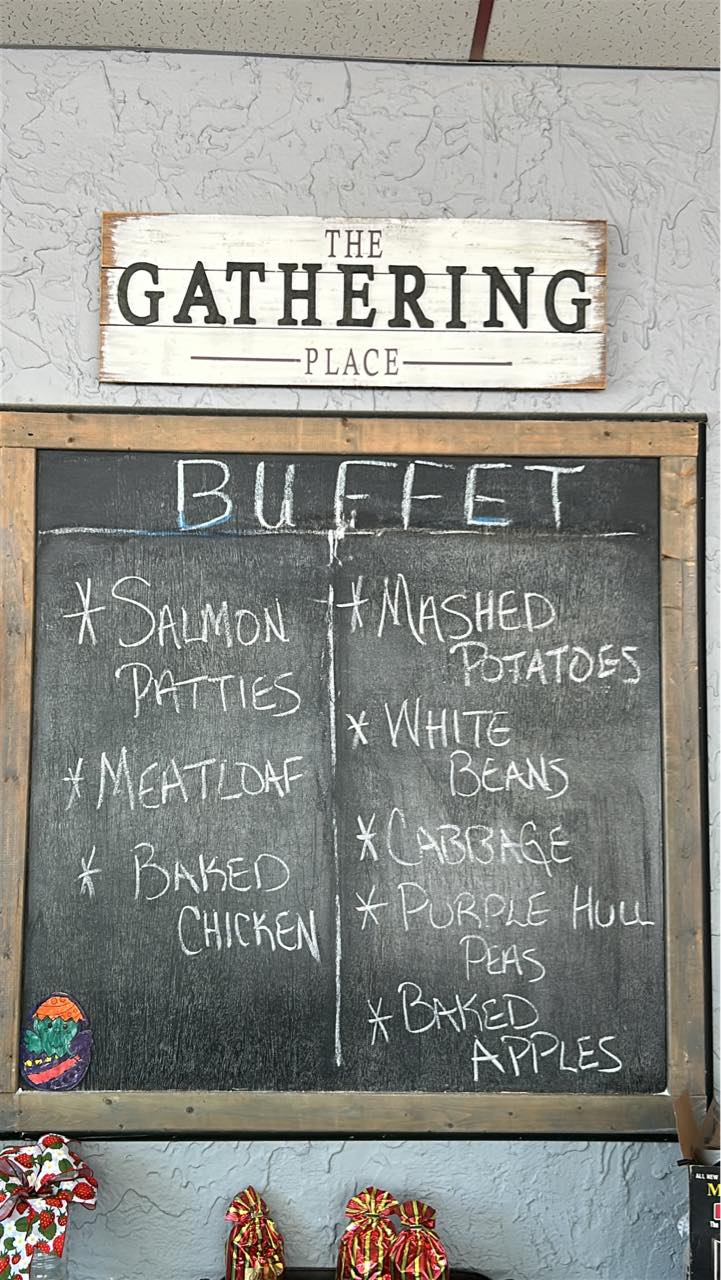 THE
GATHERING
PLACE
BUFFET
* SALMON
PATTIES
* MEATLOAF
* BAKED
CHICKEN
* MASHED
POTATOES
* WHITE
BEANS
* CABBAGE
* PURPLE HULL
PEAS
* BAKED
APPLES
ALL NEW